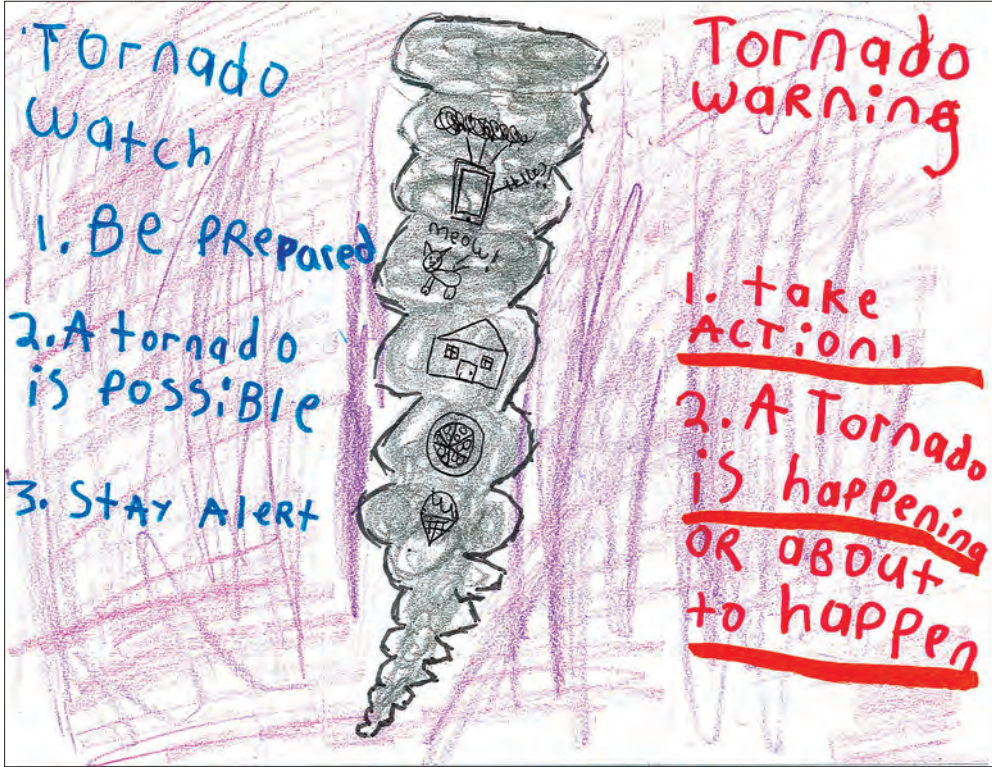 Tornado
watch
1. BE PREpared
2. A tornado
is PossiBlE
3. StAY AlERt
Hello?!
meow!
Tornado
waRning
1. take
ACTion!
2. A Tornado
is happening
OR ABOUt
to happen